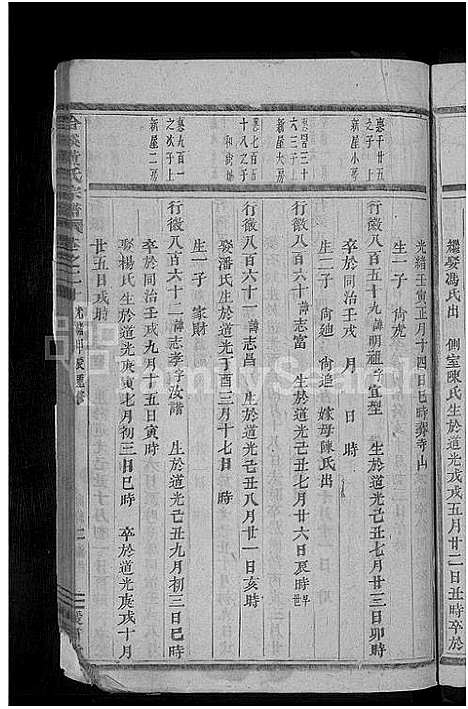 繼娶馮氏 側室陳氏生於道光戊戌五月廿二日丑時卒於
光緒壬寅正月十四日巳時葬寺山
生一子 尙虎
惠千廿五
之子 上
新屋小房
行徽八百五十九 諱明祖 字宜型 生於道光己丑七月廿三日卯時
卒於同治壬戌 月 日 時
生二子 尙廸 尙追 嫁母陳氏出
三十
六三子上
新屋大房
行徽八百六十 諱志富 生於道光己丑七月廿六日辰時 早世
惠七百五
十八之子
和街
行徽八百六十一 諱志昌 生於道光己丑八月廿一日亥時
娶潘氏生於道光丁酉三月十七日 時
生一子 家財
惠九百一
之次子上
新屋二房
行徽八百六十二 諱志孝字汝諧 生於道光己丑九月初三日巳時
卒於同治壬戌九月十五日寅時
娶楊氏 生於道光庚寅七月初三日巳時 卒於道光庚戌十月
廿五日戌時
黃氏宗譜 卷之二
FamilySearch